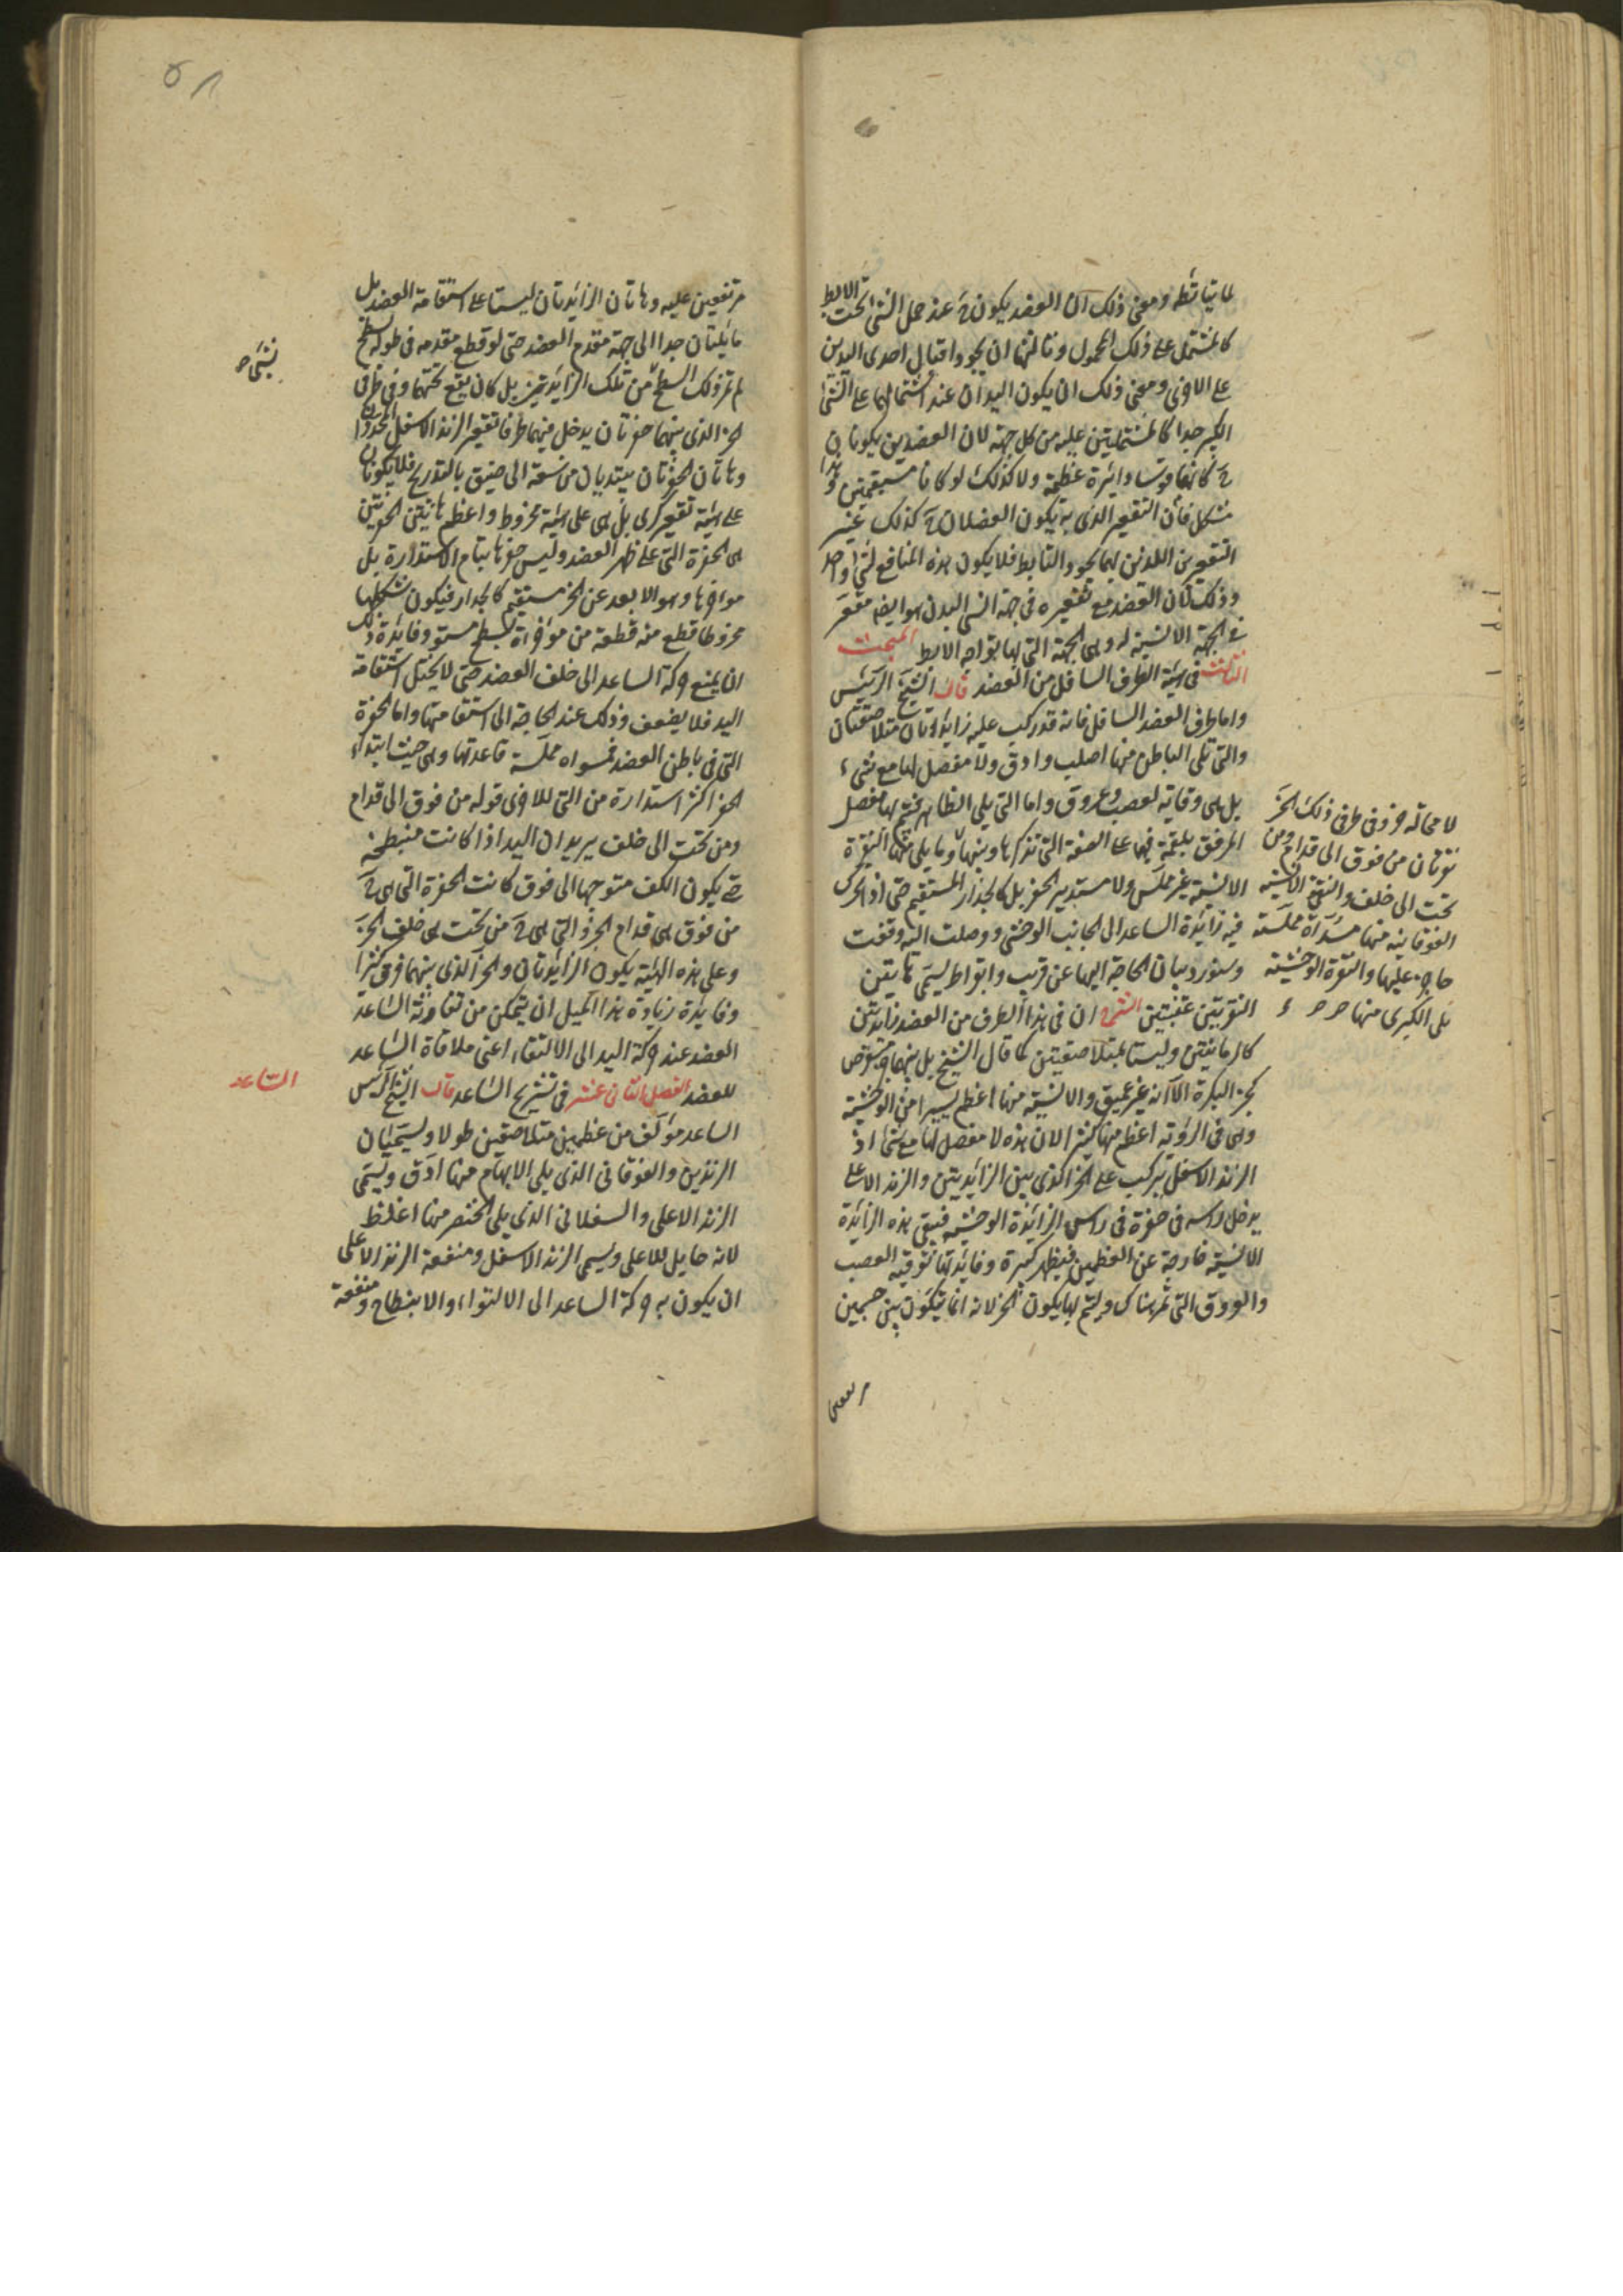 لما يتأبطه ومعنى ذلك ان العضد يكون ح عند حمل الشئ تحت الابط
كالمشتمل على ذلك المحمول وثالثها ان يجود اقبال احدى اليدين
على الاخرى ومعنى ذلك ان يكون اليدان عند اشتمالهما على الشئ
الكبير جدا كالمشتملتين عليه من كل جهة لان العضدين يكونان
ح كانهما قوسا دائرة عظيمة ولا كذلك لو كانا مستقيمتين وهذا
مشكل فان التقعير الذى به يكون العضدان ح كذلك غير
التقعيرين اللذين بهما يجود التابط فلا يكون هذه المنافع لشئ واحد
وذلك لان العضد مع تقعيره فى جهة انسى البدن هو ايضا مقعر
فى الجهة الانسية له وهى الجهة التى بها يواجه الابط المبحث
الثالث فى هيئة الطرف السافل من العضد قال الشيخ الرئيس
واما طرف العضد السافل فانه قد ركب عليه زايدتان متلاصقتان
والتى تلى الباطن منهما اصلب وادق ولا مفصل لها مع شىء
بل هى وقاية لعصب وعروق واما التى يلى الظاهر فيتم بها مفصل
المرفق بلقمة فيها على الصفة التى نذكرها وبينهما
لا محالة حز وفى طرفى ذلك الحز
نقرتان من فوق الى قدام ومن
تحت الى خلف والنقرة الانسية
الفوقانية منهما مسواة مملسة
حاجز عليها والنقرة الوحشية
هى الكبرى منهما صح صح
وما يلى منها النقرة
الانسية غير مملس ولا مستدير الحفر بل كالجدار المستقيم حتى اذا تحرك
فيه زائدة الساعد الى الجانب الوحشى ووصلت اليه وقفت
وسنورد بيان الحاجة اليها عن قريب وابقراط يسمى هاتين
النقرتين عتبتين الشرح ان فى هذا الطرف من العضد زايدتين
كالرمانتين وليستا بمتلاصقتين كما قال الشيخ بل بينهما
كحز البكرة الا انه غير عميق والانسية منهما اعظم يسيرا من الوحشية
وهى فى الرؤية اعظم منها كثيرا لان هذه لا مفصل لها مع شئ اذ
الزند الاسفل يتركب على الحز الذى بين الزائدتين والزند الاعلى
يدخل راسه فى حفرة فى راس الزائدة الوحشية فيبقى هذه الزائدة
الانسية خارجة عن العظمين فيظهر كبيرة وفائدتها توقية العصب
والعروق التى تمر هناك وليتم بها يكون الحز لانه انما يتكون بين جسمين
مرتفعين
مرتفعين عليه وهاتان الزائدتان ليستا على استقامة العضد بل
مايلتان جدا الى جهة مقدم العضد حتى لو قطع مقدمه فى طوله بسطح
لم تمر ذلك السطح من تلك الزائدتين بل كان يقع تحتهما وفى طرفى
الحز الذى بينهما حفرتان يدخل فيهما طرفا تقعير الزند الاسفل
وهاتان الحفرتان يبتديان من سعة الى ضيق بالتدريج فلا يكونان
على هيئة تقعير كرى بل هى على هيئة مخروط واعظم هاتين الحفرتين
هى الحفرة التى على ظهر العضد وليس حفرها بتام الاستدارة بل
مواخرها وهو الابعد عن الحز مستقيم كالجدار فيكون شكلها
مخروطا قطع منه قطعة من مواخره بسطح مستو وفايدة ذلك
ان يمنع حركة الساعد الى خلف العضد حتى لا يختل استقامة
اليد فلا يضعف وذلك عند الحاجة الى استقامتها واما الحفرة
التى فى باطن العضد فمسواه مملسة قاعدتها وهى حيث ابتداء
الحفر اكثر استدارة من التى للاخرى قوله من فوق الى قدام
ومن تحت الى خلف يريد ان اليد اذا كانت منبطحة
حتى يكون الكف متوجها الى فوق كانت الحفرة التى هى ح
من فوق هى قدام الحز والتى هى ح من تحت هى خلف الحز
وعلى هذه الهيئة يكون الزائدتان والحز الذى بينهما
وفايدة زيادة هذا الميل ان يتمكن من الساعد
العضد عند حركة اليد الى الالتقاء اعنى ملاقاة الساعد
للعضد الفصل الثانى عشر فى تشريح الساعد قال الشيخ الرئيس
الساعد
الساعد مؤلف من عظمين متلاصقين طولا ويسميان
الزندين والفوقانى الذى يلى الابهام منهما ادق ويسمى
الزند الاعلى والسفلانى الذى يلى الخنصر منهما اغلظ
لانه حامل للاعلى ويسمى الزند الاسفل ومنفعة الزند الاعلى
ان يكون به حركة الساعد الى الالتواء والانبطاح ومنفعة